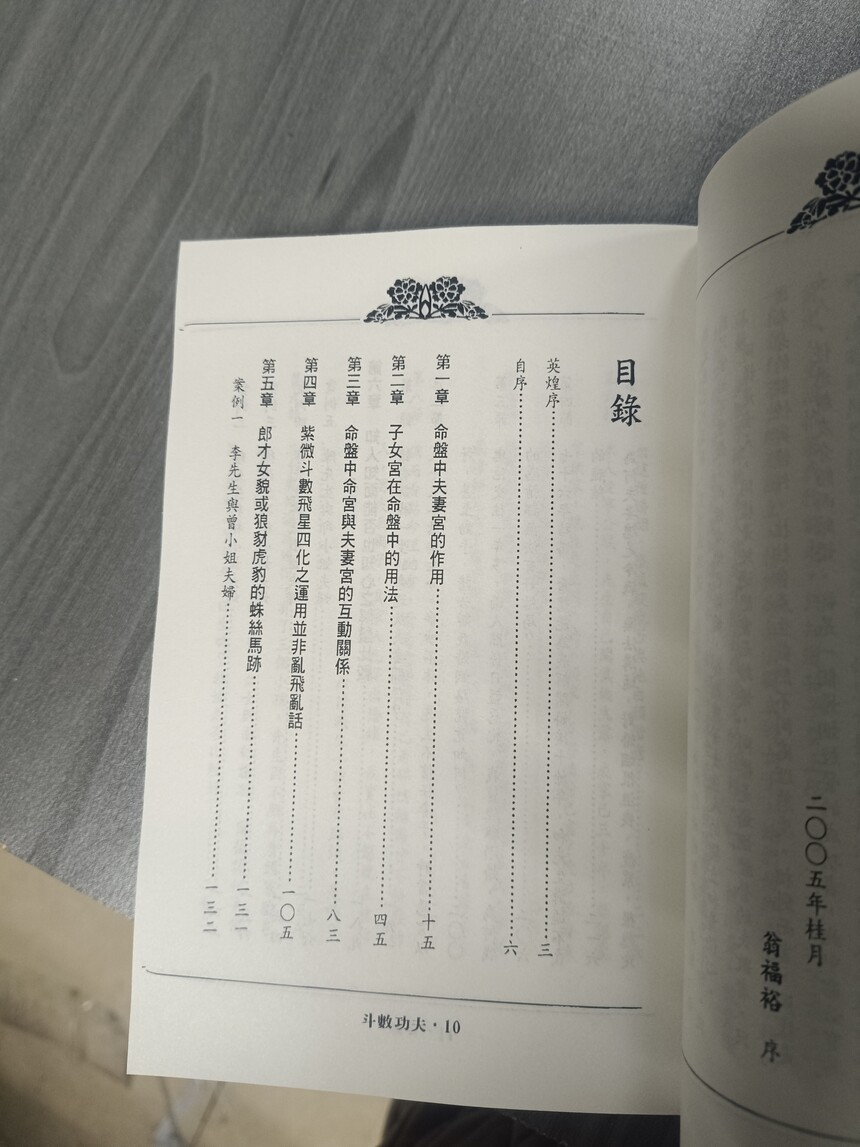 二〇〇五年桂月
翁福裕 序
目錄
英煌序……三
自序……六
第一章 命盤中夫妻宮的作用……十五
第二章 子女宮在命盤中的用法……四五
第三章 命盤中命宮與夫妻宮的互動關係……八三
第四章 紫微斗數飛星四化之運用並非亂飛亂話……一〇五
第五章 郎才女貌或狼豺虎豹的蛛絲馬跡……一三一
案例一 李先生與曾小姐夫婦……一三二
斗數功夫·10